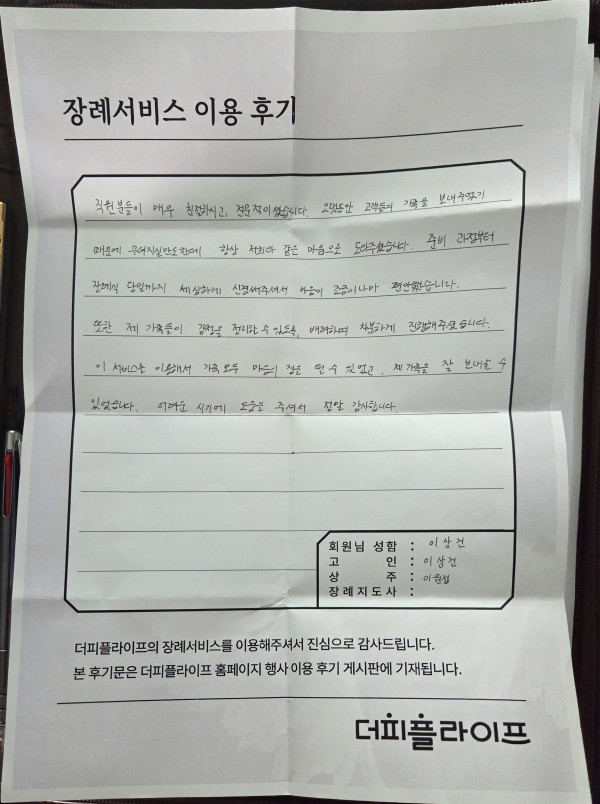 장례서비스 이용 후기
직원분들이 매우 친절하시고, 전문적이셨습니다. 오랫동안 고객들의 가족을 보내주었기
때문에 무뎌지실만도한데 항상 저희와 같은 마음으로 도와주셨습니다. 준비 과정부터
장례식 당일까지 세심하게 신경써주셔서 마음이 조금이나마 편안했습니다.
또한 제 가족들이 감정을 정리할 수 있도록, 배려하며 차분하게 진행해주셨습니다.
이 서비스를 이용해서 가족 모두 마음의 짐을 덜 수 있었고, 제 가족을 잘 보내줄 수
있었습니다. 어려운 시기에 도움을 주셔서 정말 감사합니다.
회원님 성함 : 이상건
고 인 : 이상건
상 주 : 이원섭
장례지도사 :
더피플라이프의 장례서비스를 이용해주셔서 진심으로 감사드립니다.
본 후기문은 더피플라이프 홈페이지 행사 이용 후기 게시판에 기재됩니다.
더피플라이프